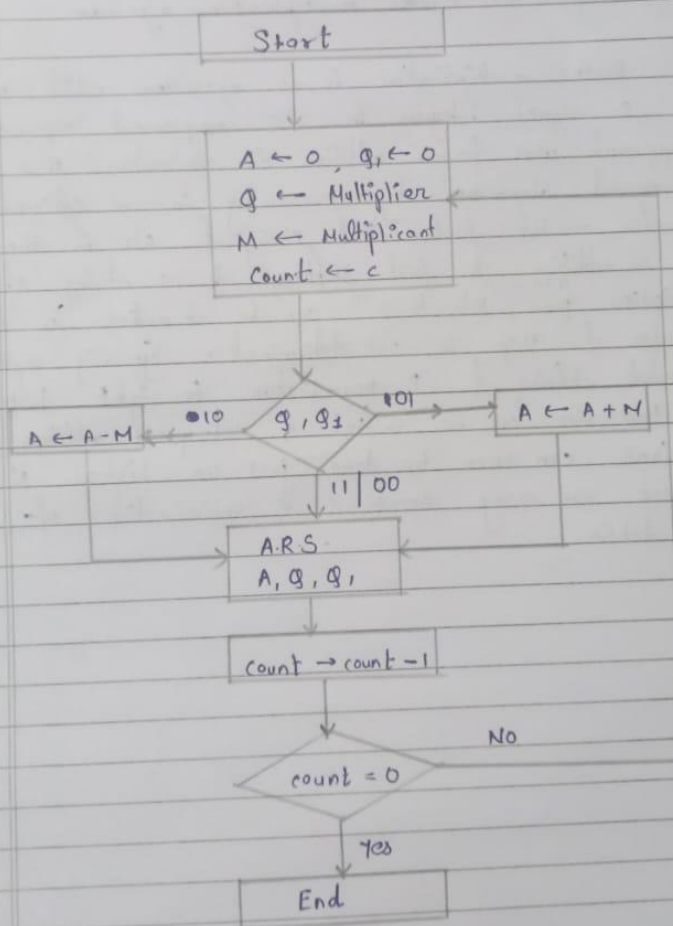 Start
A ← 0, Q₁ ← 0
Q ← Multiplier
M ← Multiplicant
Count ← c
A ← A-M
10
Q, Q1
101
A ← A + M
11 | 00
A.R.S
A, Q, Q₁
Count → count -1
count = 0
No
Yes
End